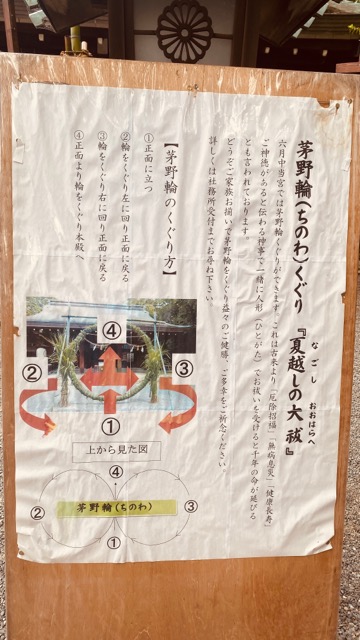 茅野輪(ちのわ)くぐり 『夏越しの大祓』
なごし おおはらへ
六月中当宮では茅野輪くぐりができます。これは古来より「厄除招福」「無病息災」「健康長寿」
ご神徳があると伝わる神事で一緒に人形(ひとがた)でお祓いを受けると千年の命が延びる
とも言われております。
どうぞご家族お揃いで茅野輪をくぐり益々のご健勝、ご多幸をご祈念ください。
詳しくは社務所受付までお尋ね下さい。
【茅野輪のくぐり方】
①正面に立つ
②輪をくぐり左に回り正面に戻る
③輪をくぐり右に回り正面に戻る
④正面より輪をくぐり本殿へ
④
②
③
①
上から見た図
④
茅野輪(ちのわ)
②
③
①